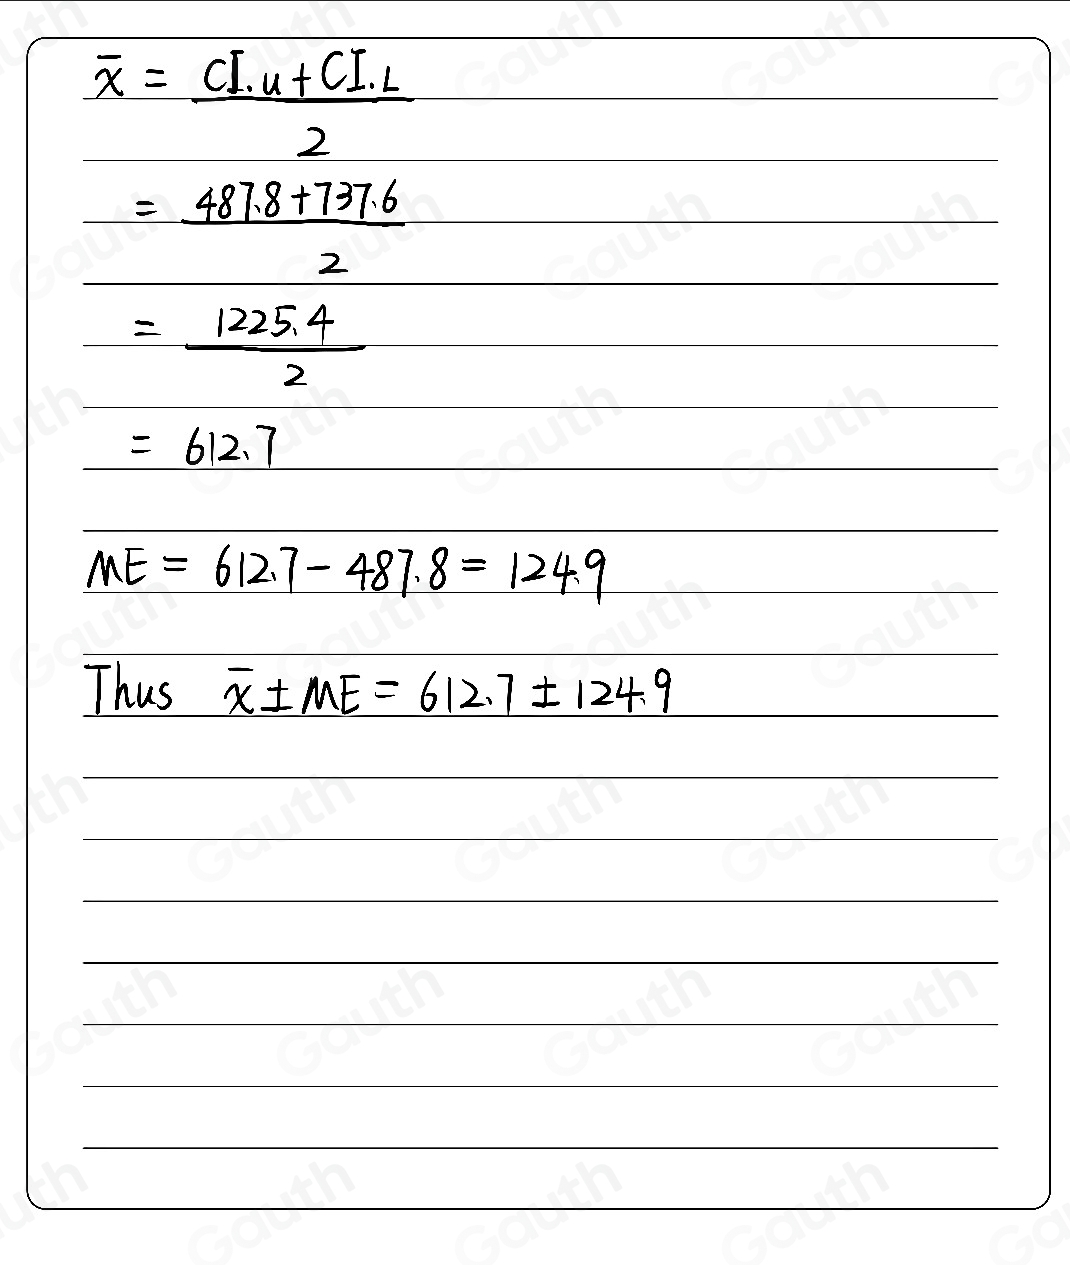 x̄ = CI.u + CI.L
2
= 487.8 + 737.6
2
= 1225.4
2
= 612.7
ME = 612.7 − 487.8 = 124.9
Thus x̄ ± ME = 612.7 ± 124.9